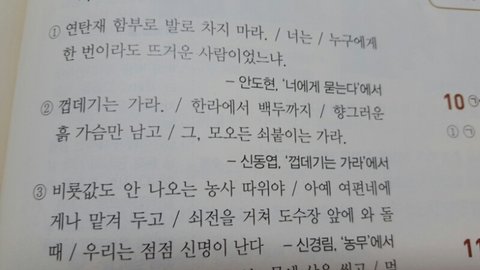 ① 연탄재 함부로 발로 차지 마라. / 너는 / 누구에게
한 번이라도 뜨거운 사람이었느냐.
– 안도현, '너에게 묻는다'에서
② 껍데기는 가라. / 한라에서 백두까지 / 향그러운
흙 가슴만 남고 / 그, 모오든 쇠붙이는 가라.
– 신동엽, '껍데기는 가라'에서
③ 비룟값도 안 나오는 농사 따위야 / 아예 여편네에
게나 맡겨 두고 / 쇠전을 거쳐 도수장 앞에 와 돌
때 / 우리는 점점 신명이 난다 – 신경림, '농무'에서
10 ㉠
① ㉠
11